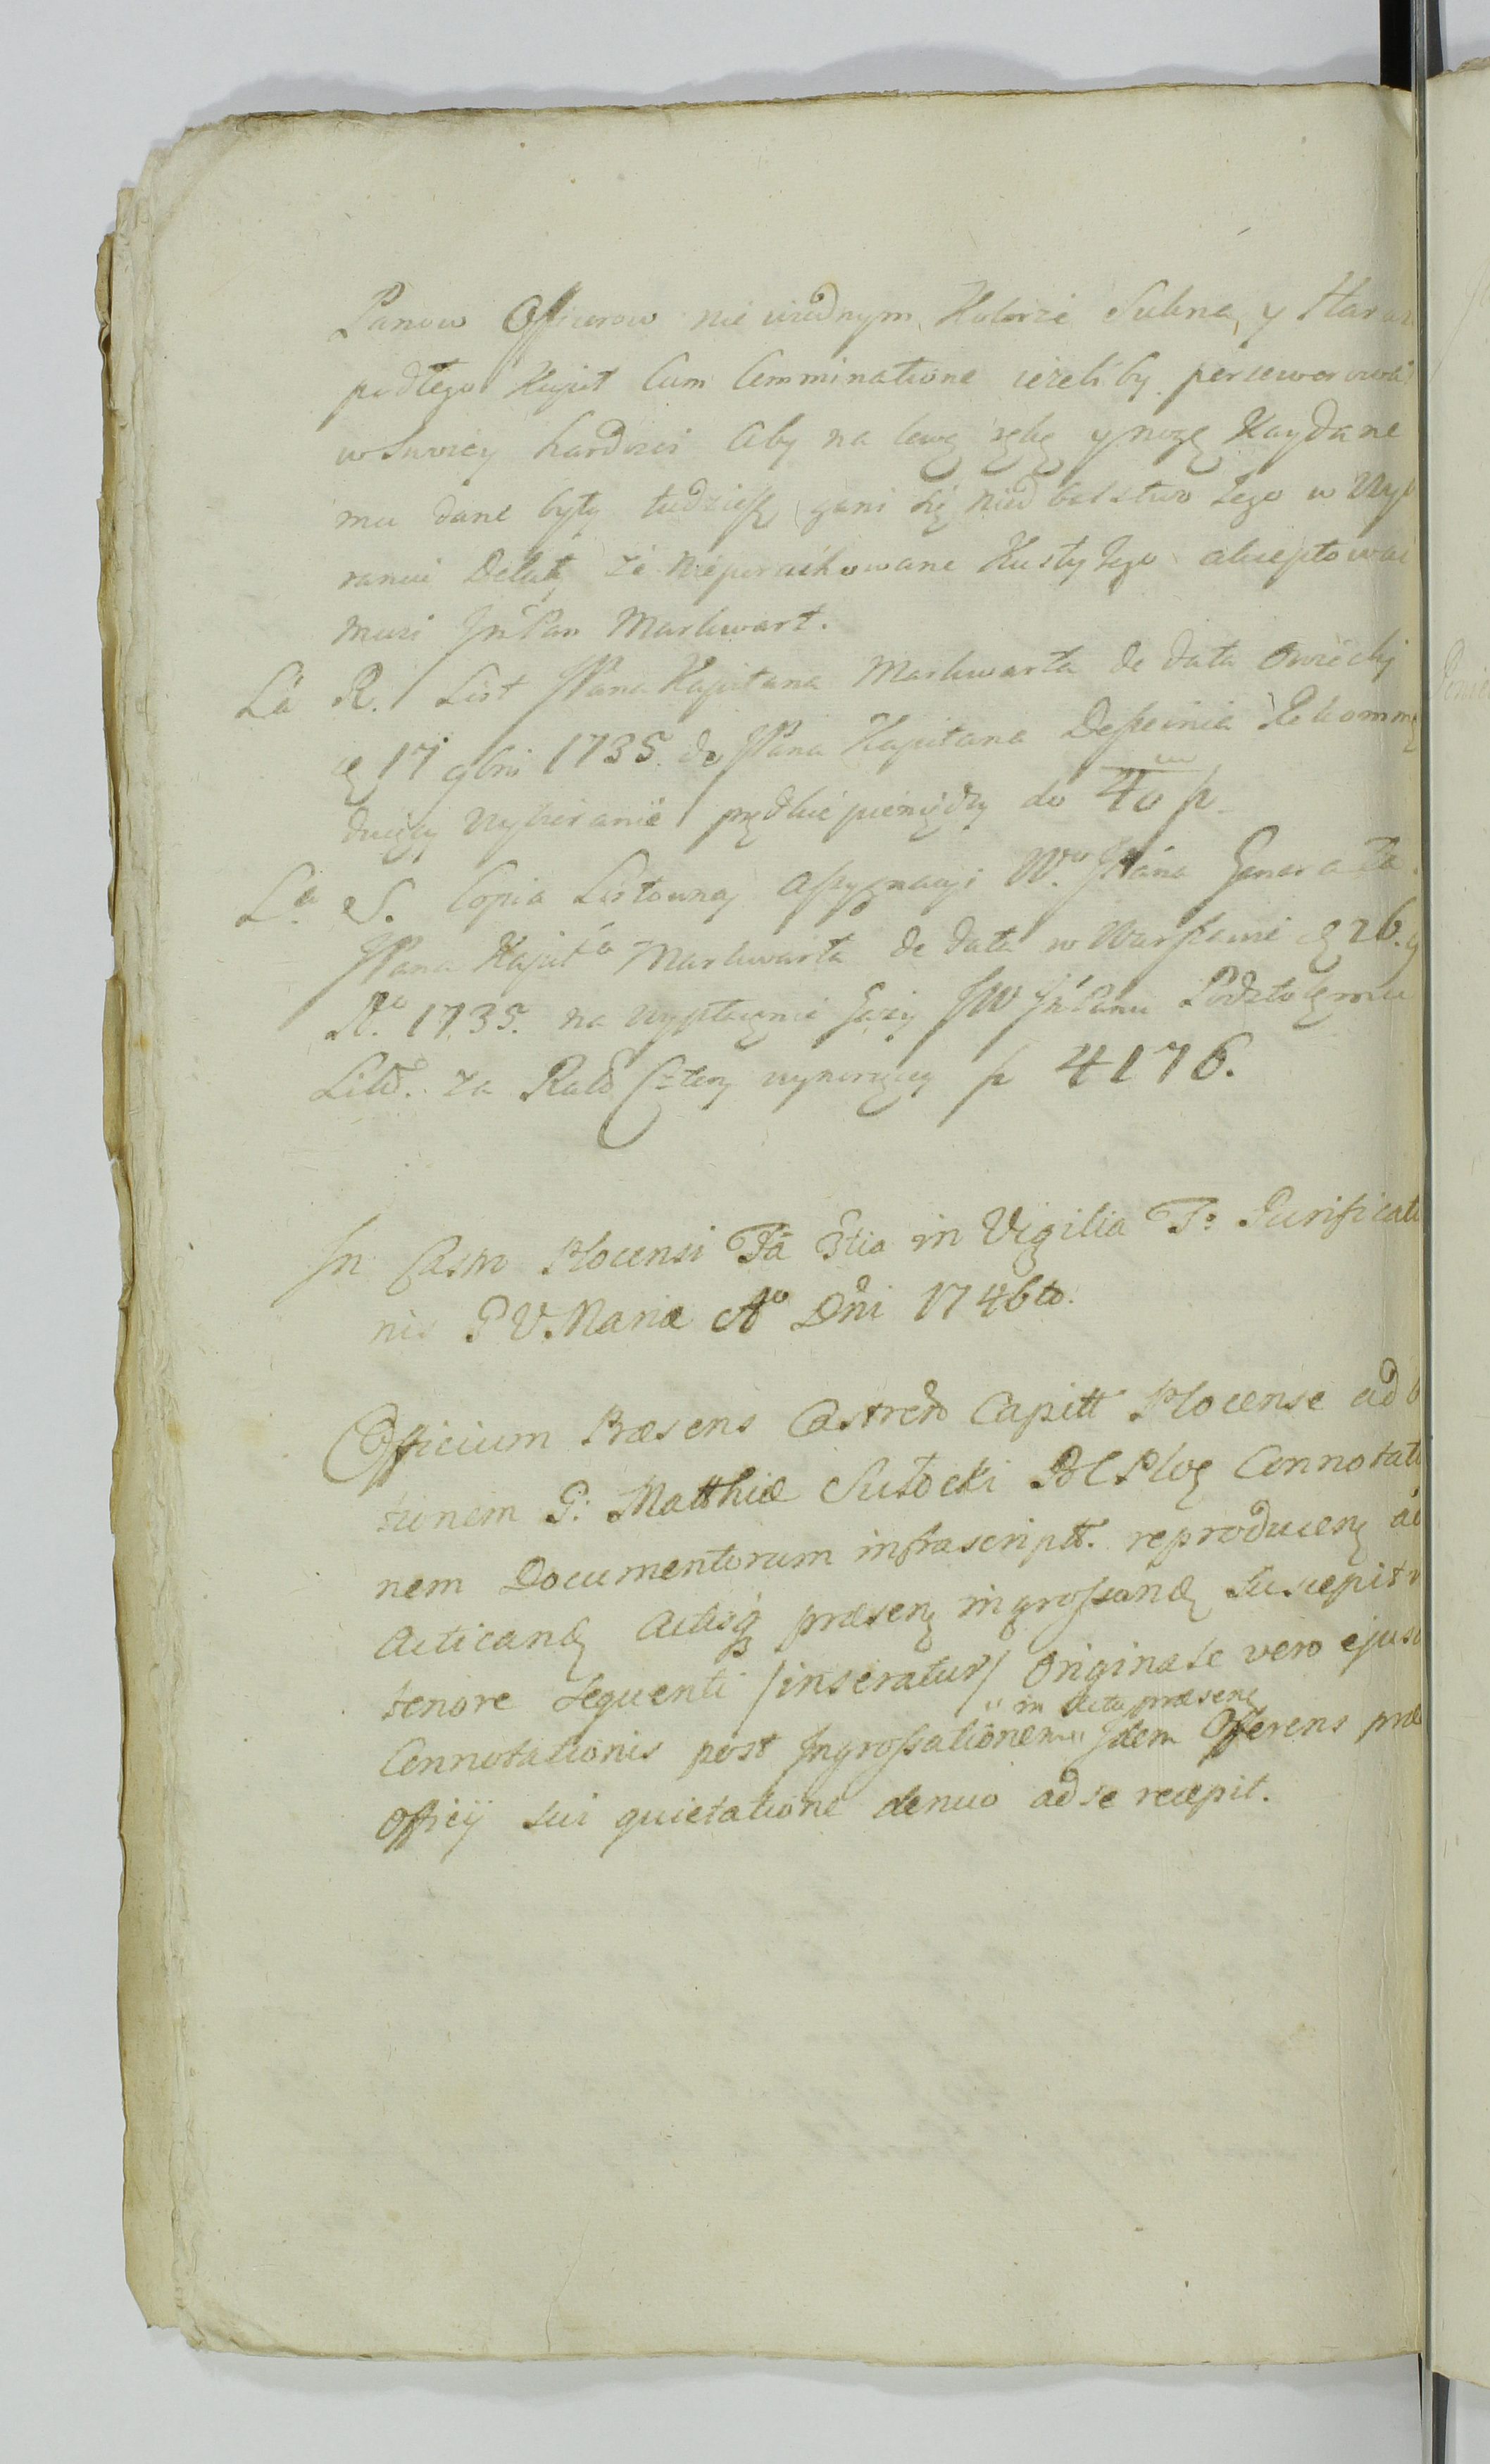 Panow Officerow nie iednym Kolorze Sukna, y Star
podłego Kupił Cum Comminatione ieżeli by persewerował
w Swoiey hardości Aby na lewę rękę y nogę Kaydane
mu dane były tudziesz gani się niedbalstwo Jego w Wyb
raniu Delat, że Nieporachowane Kusty Jego akceptować
musi Jm Pan Markwart.
La R. List JPana Kapitana Markwarta de data
17 9bris 1735. do JPana Kapitana Rekomm
duięcy Wybieranie prętkie pieniędzy do 40 
La S. Copia Listowney Assygnacyi Wo. JPana Generała
JPana Kapit. Markwarta de data w Warszawie 26.
Ao. 1735. na wypłacenie Gaży JW Jm Panu Podstolemu
Litt. za Rat Cztery wynoszącey 4176.
In Castro Plocensi Fa 3tia in Vigilia F: Purificatio
nis P V. Mariæ Ao Dni 1746to.
Officium Præsens Castren Capitt Plocense ad
tionem G: Matthiæ Sutocki Connotatio
nem Documentorum infrascriptt. reproducen ad
Acticand Actisq præsen ingrossand Suscepit
tenore Sequenti /inseratur/ Originale vero ejusd
in Acta præsen
Connotationis post Ingrossationem Idem Offerens præ
Officij sui quietatione denuo ad se recepit.